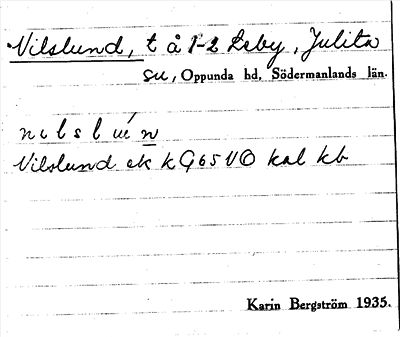 Vilslund, t å 1-2 Reby, Julita
su, Oppunda hd, Södermanlands län.
Vilslund ek k G65 VO kal kb
Karin Bergström 1935.